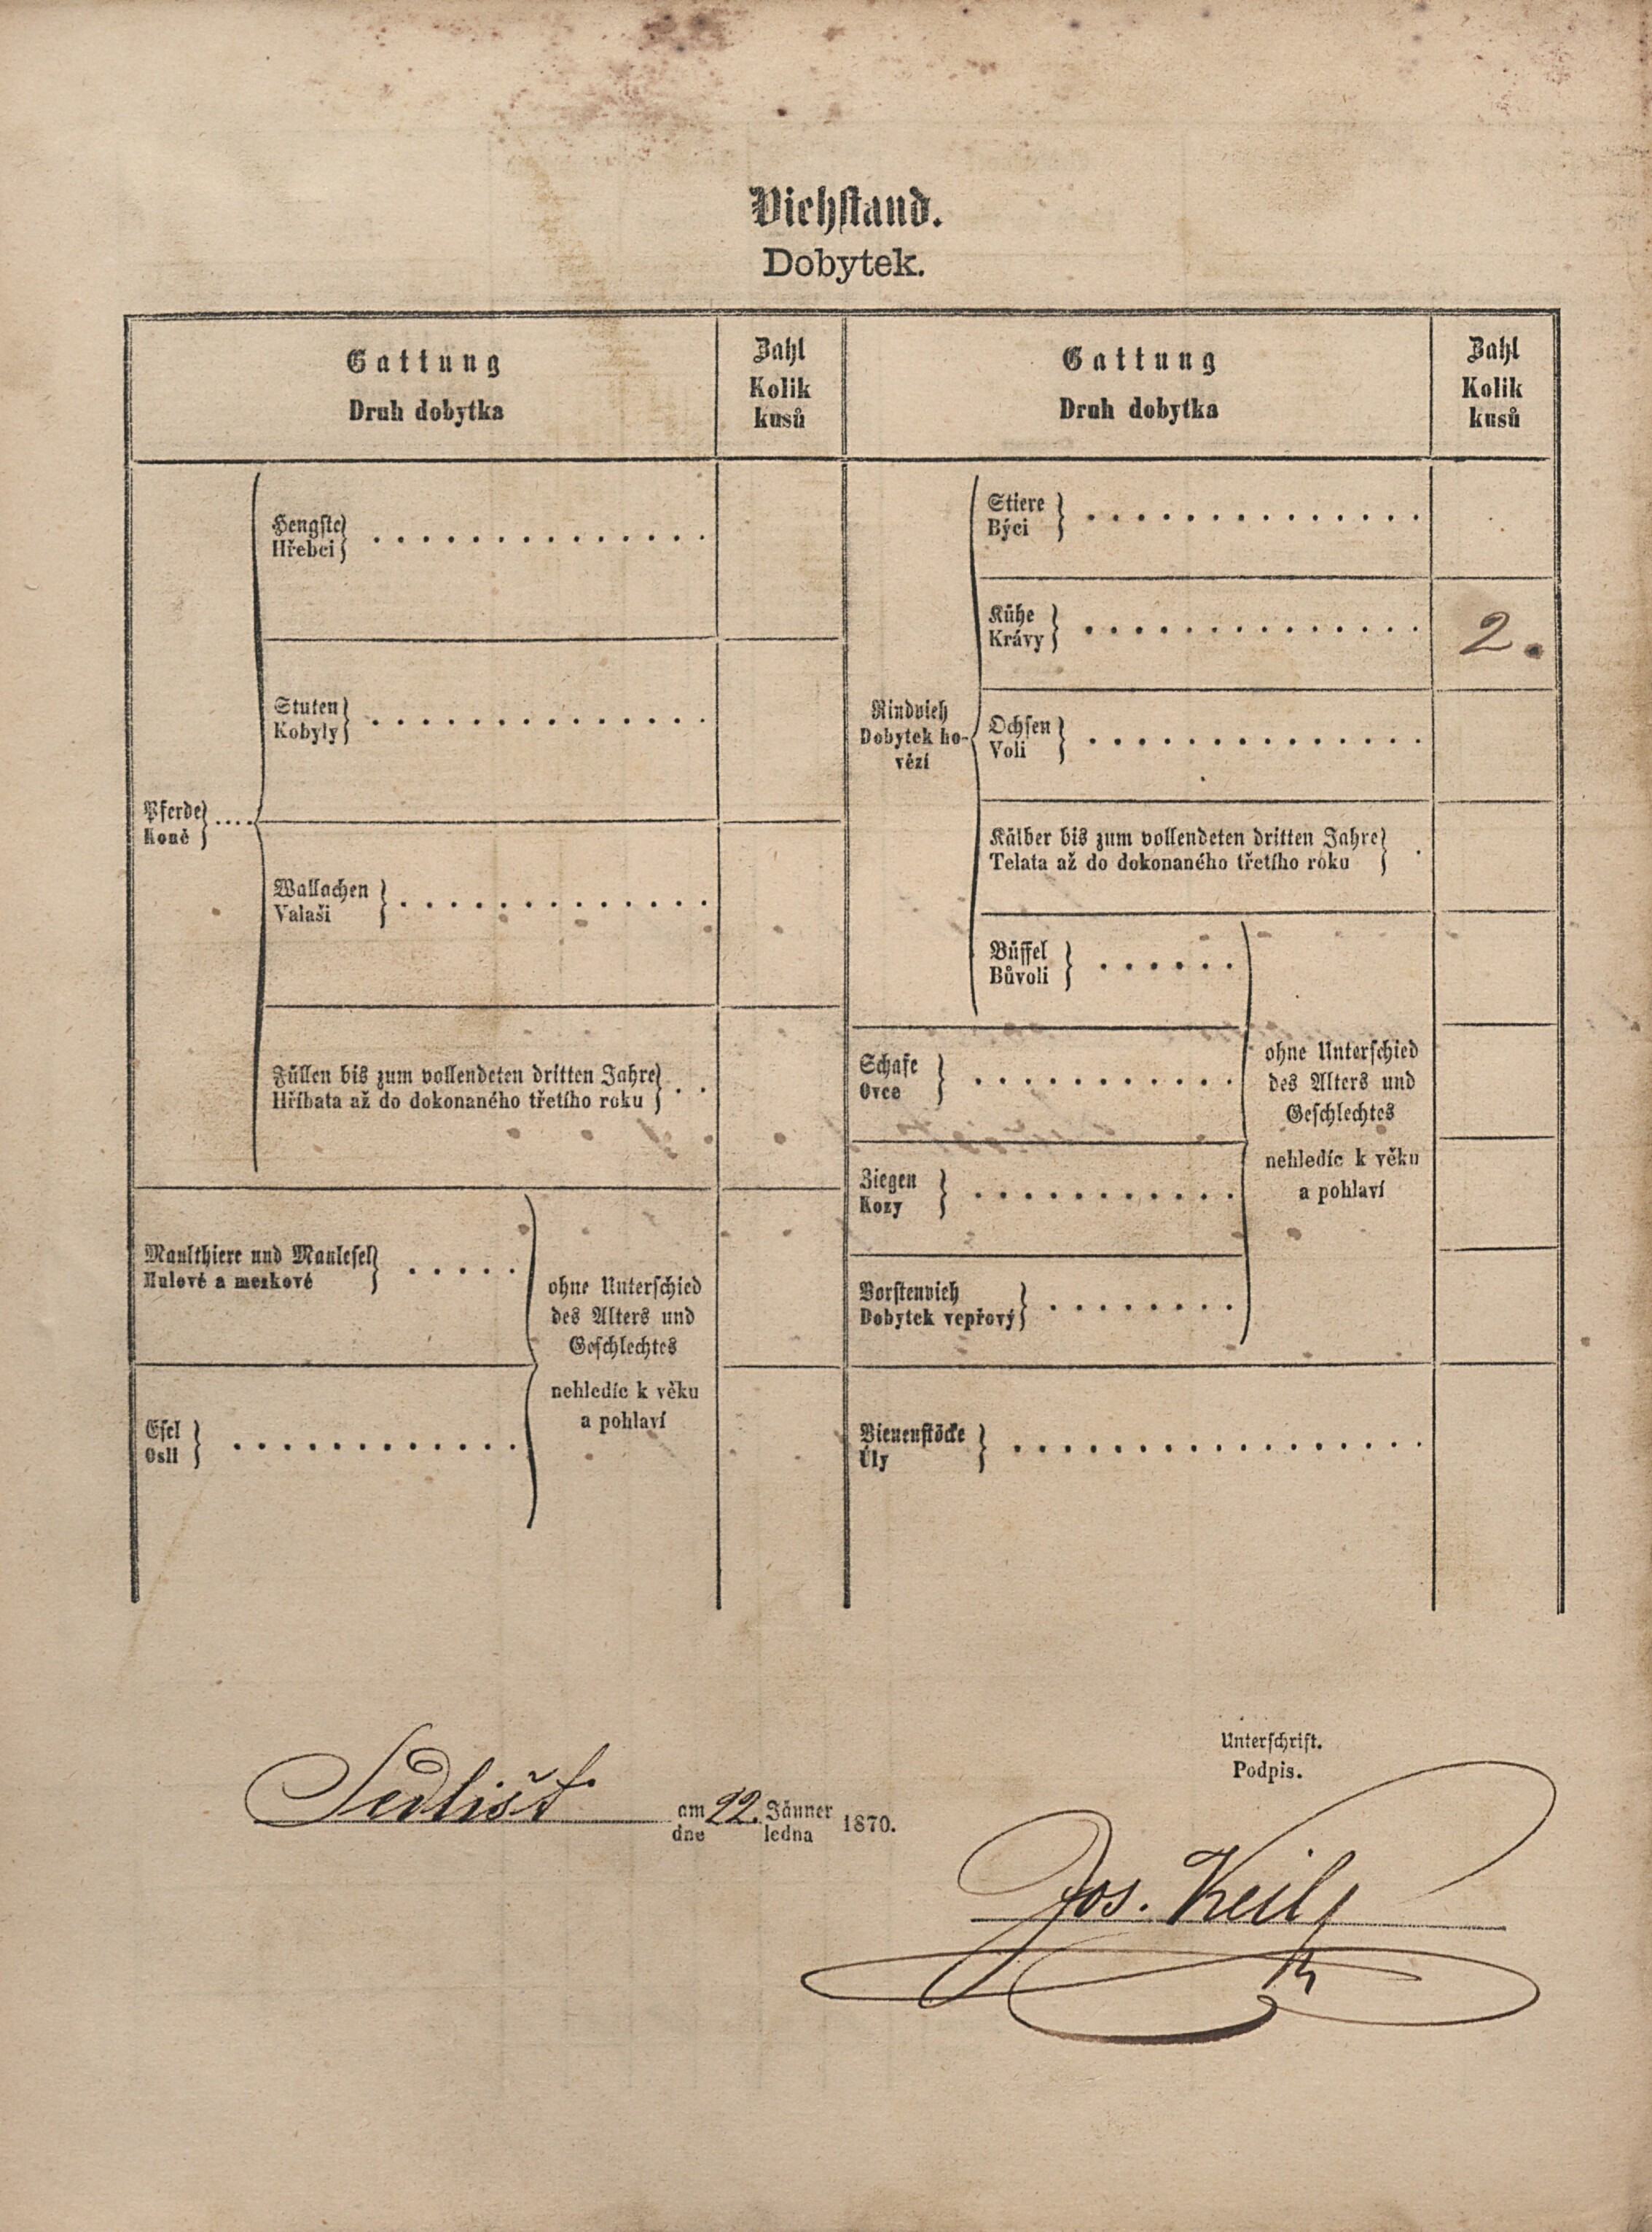 Viehstand.
Dobytek.
Gattung
Druh dobytka
Zahl
Kolik
kusů
Gattung
Druh dobytka
Zahl
Kolik
kusů
Pferde
Koně
Hengste
Hřebci
Stuten
Kobyly
Wallachen
Valaši
Füllen bis zum vollendeten dritten Jahre
Hříbata až do dokonaného třetího roku
Maulthiere und Maulesel
Mulové a mezkové
Esel
Osli
ohne Unterschied
des Alters und
Geschlechtes
nehledíc k věku
a pohlaví
Rindvieh
Dobytek ho-
vězí
Stiere
Býci
Kühe
Krávy
2.
Ochsen
Voli
Kälber bis zum vollendeten dritten Jahre
Telata až do dokonaného třetího roku
Büffel
Bůvoli
Schafe
Ovce
Ziegen
Kozy
Borstenvieh
Dobytek vepřový
ohne Unterschied
des Alters und
Geschlechtes
nehledíc k věku
a pohlaví
Bienenstöcke
Úly
Sedlišt am 22. Jänner 1870.
dne ledna
Unterschrift.
Podpis.
Jos. Keil